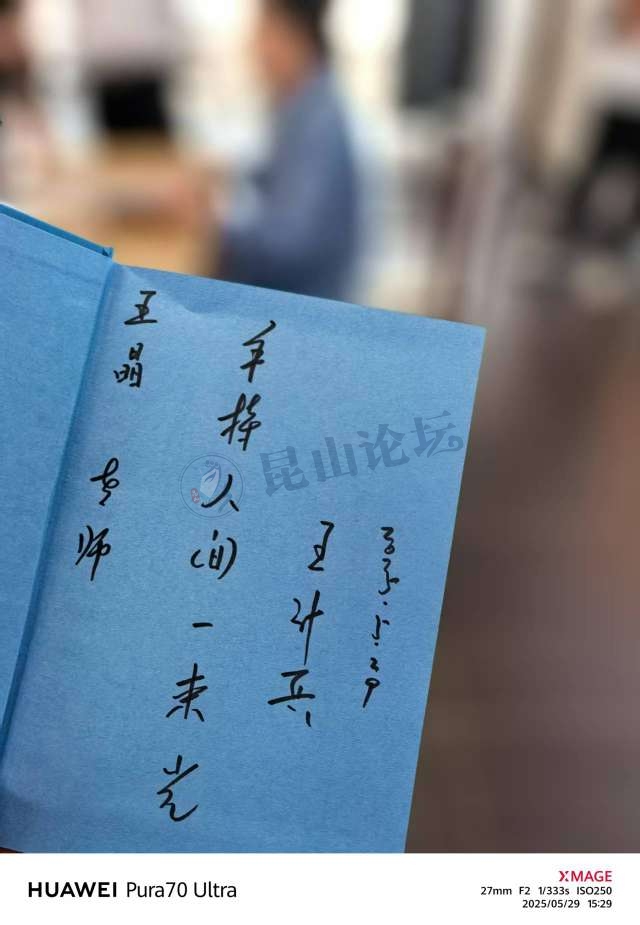 王晶
老师
手持人间一束光
王计兵
2025.5.29
昆山论坛
HUAWEI Pura70 Ultra
XMAGE
27mm F2 1/333s ISO250
2025/05/29 15:29